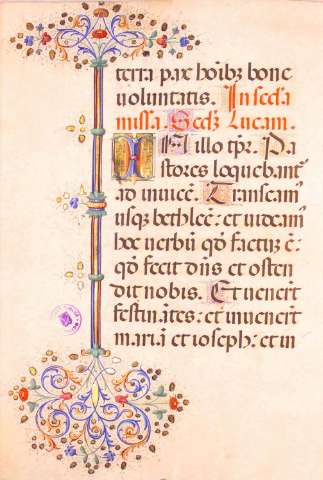 terra pax hoibꝫ bone
uoluntatis. In secd̄a
missa. Secd̄ꝫ Lucam.
In illo tp̄r. Pa
stores loquebant᷑
ad inuicē. Transeam᷒
usqꝫ bethleē: et uideam᷒
hoc uerbū qd̄ factū ē:
qd̄ fecit dn̄s et osten
dit nobis. Et uenerūt
festinātes: et inuenerūt
mariā et ioseph: et in